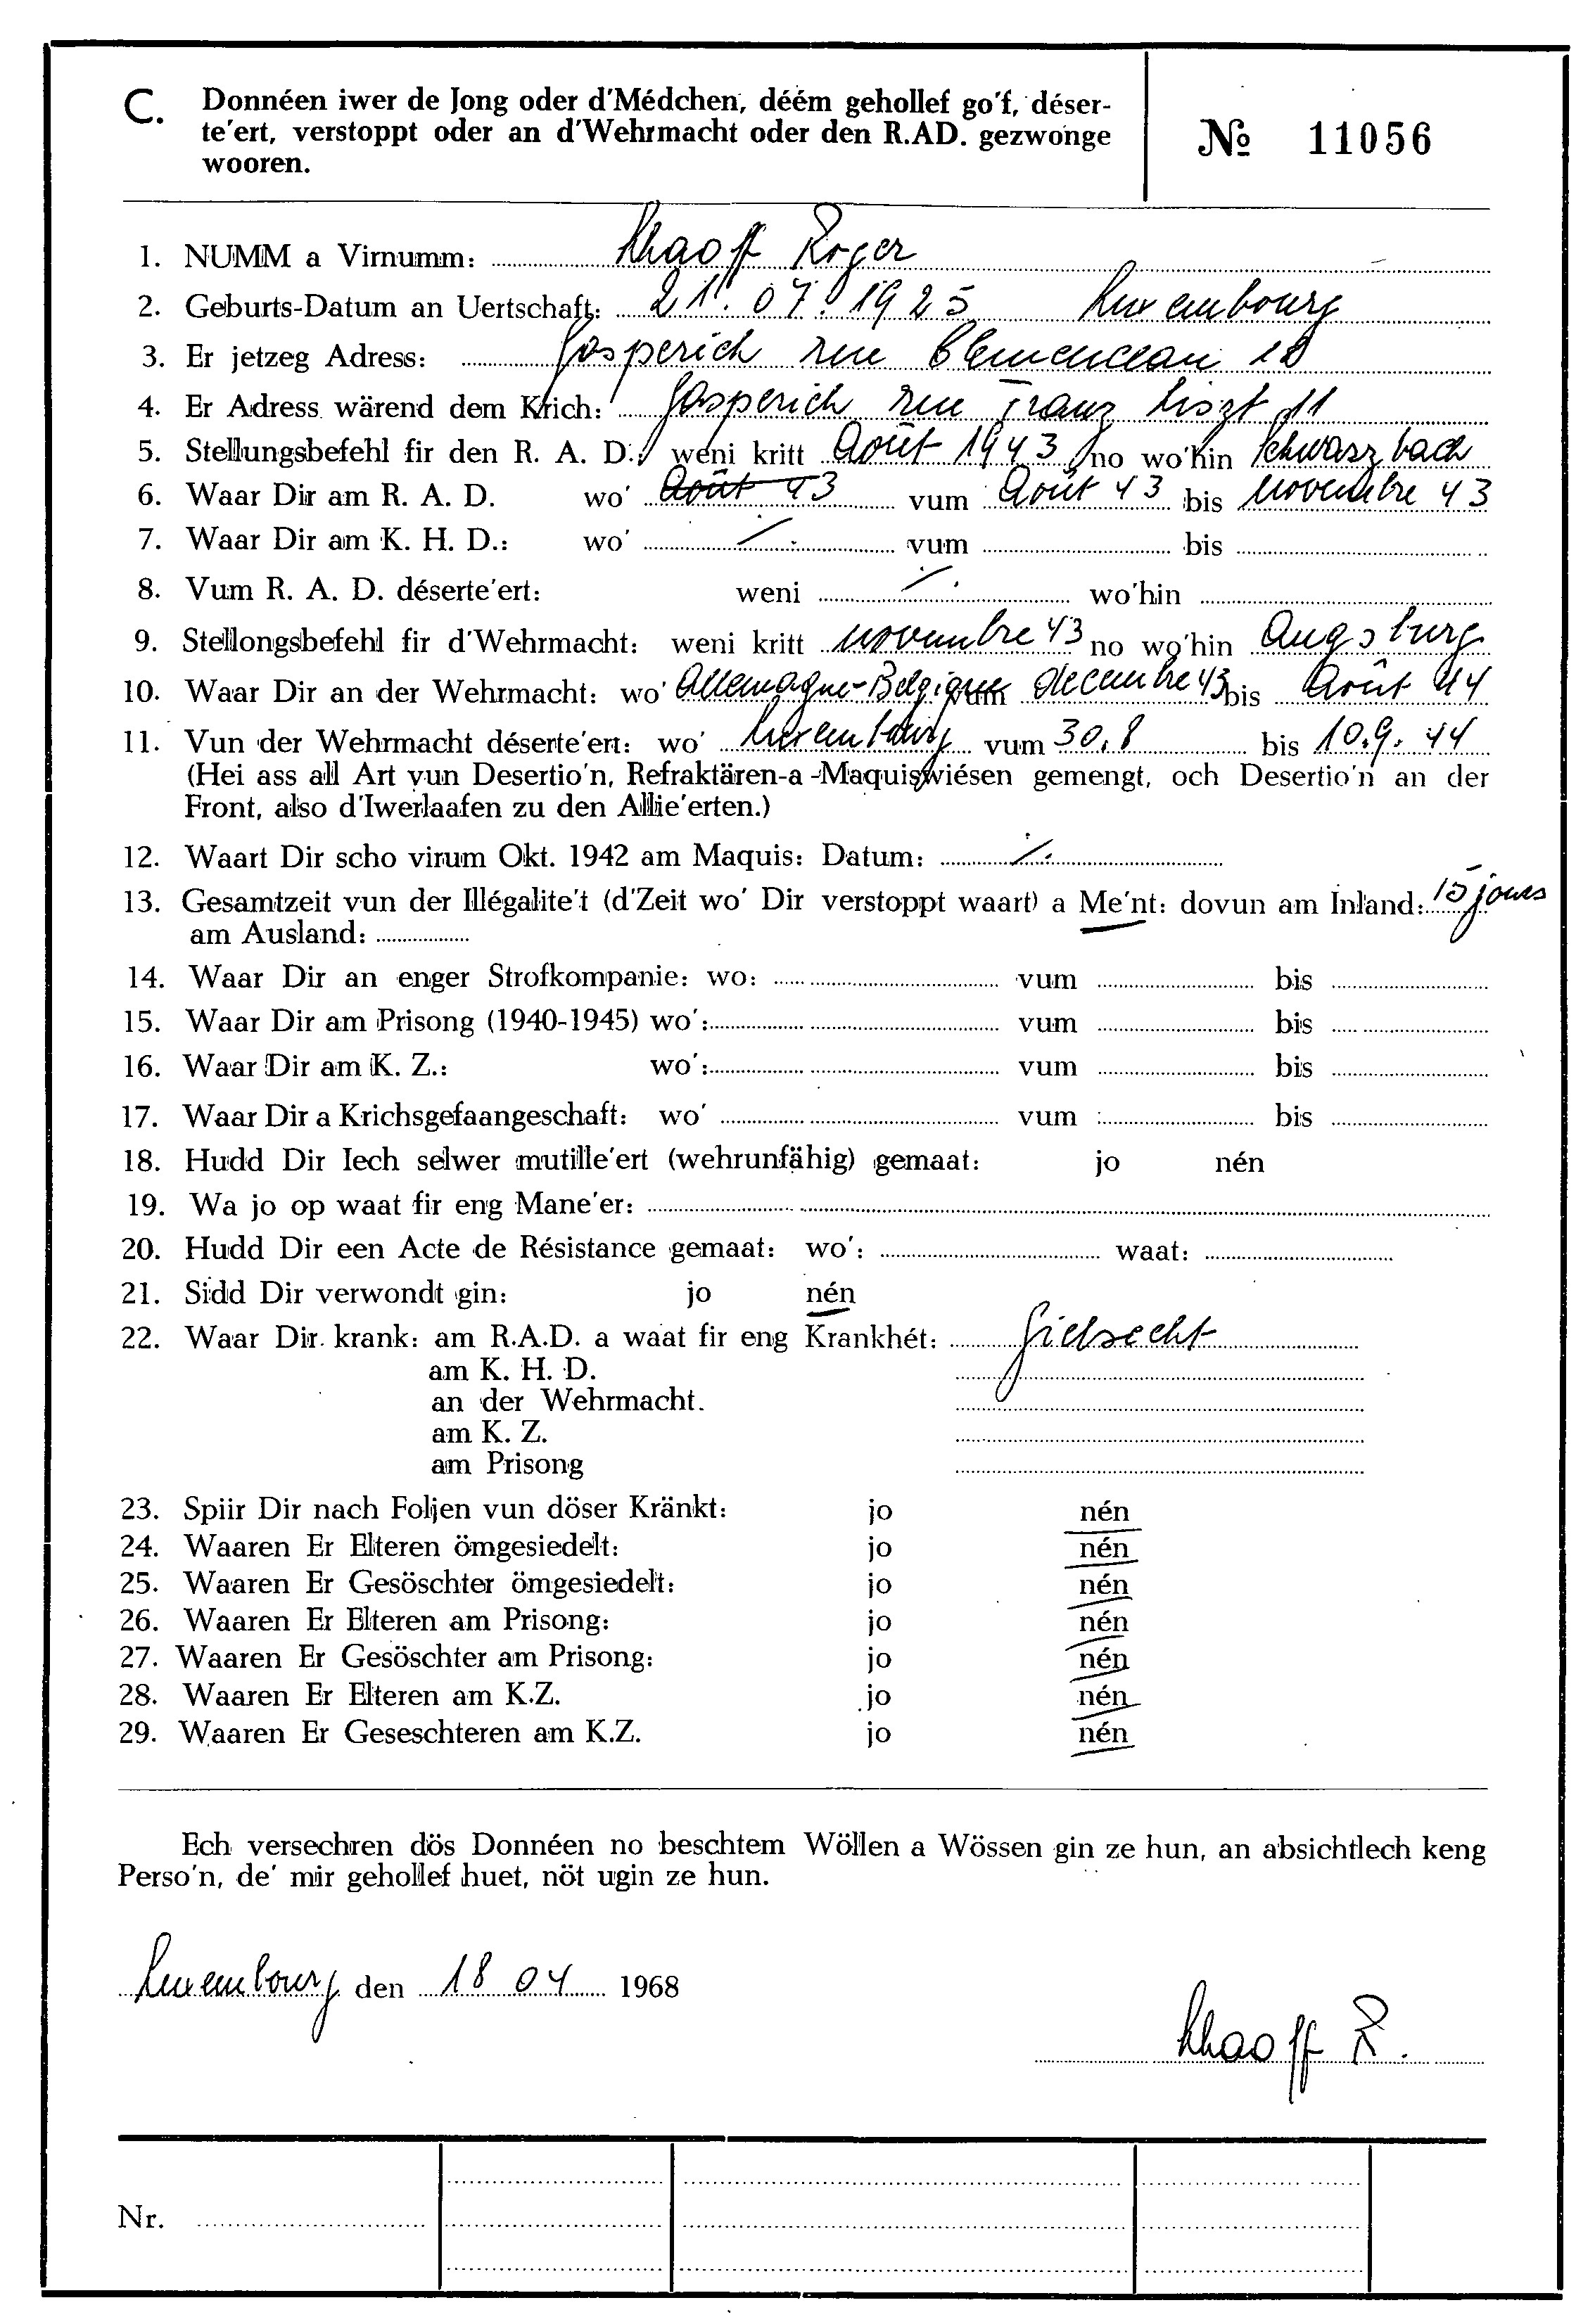 C. Donnéen iwer de Jong oder d'Médchen, déém gehollef go'f, déser-
te'ert, verstoppt oder an d'Wehrmacht oder den R.AD. gezwonge
wooren.
№ 11056
1. NUMM a Virnumm: Roger
2. Geburts-Datum an Uertschaft: 21. 07. 1925 Luxembourg
3. Er jetzeg Adress: Gasperich rue Clemenceau 18
4. Er Adress wärend dem Krich: Gasperich rue Franz Liszt 11
5. Stellungsbefehl fir den R. A. D.: weni kritt Août 1943 no wo'hin Schwarzbach
6. Waar Dir am R. A. D. wo' Août 43 vum Août 43 bis novembre 43
7. Waar Dir am K. H. D.: wo' ./. vum bis
8. Vum R. A. D. déserte'ert: weni ./. wo'hin
9. Stellongsbefehl fir d'Wehrmacht: weni kritt novembre 43 no wo'hin Augsburg
10. Waar Dir an der Wehrmacht: wo' Allemagne-Belgique vum decembre 43 bis Août 44
11. Vun der Wehrmacht déserte'ert: wo' Luxembourg vum 30.8 bis 10.9.44
(Hei ass all Art vun Desertio'n, Refraktären-a-Maquiswiésen gemengt, och Desertio'n an der
Front, also d'Iwerlaafen zu den Allie'erten.)
12. Waart Dir scho virum Okt. 1942 am Maquis: Datum: ./.
13. Gesamtzeit vun der Illégalite't (d'Zeit wo' Dir verstoppt waart) a Me'nt: dovun am Inland: 15 jours
am Ausland:
14. Waar Dir an enger Strofkompanie: wo: vum bis
15. Waar Dir am Prisong (1940-1945) wo': vum bis
16. Waar Dir am K. Z.: wo': vum bis
17. Waar Dir a Krichsgefaangeschaft: wo' vum bis
18. Hudd Dir Iech selwer mutille'ert (wehrunfähig) gemaat: jo nén
19. Wa jo op waat fir eng Mane'er:
20. Hudd Dir een Acte de Résistance gemaat: wo': waat:
21. Sidd Dir verwondt gin: jo nén
22. Waar Dir krank: am R.A.D. a waat fir eng Krankhét: Gielsecht
am K. H. D.
an der Wehrmacht.
am K. Z.
am Prisong
23. Spiir Dir nach Foljen vun döser Kränkt: jo nén
24. Waaren Er Elteren ömgesiedelt: jo nén
25. Waaren Er Gesöschter ömgesiedelt: jo nén
26. Waaren Er Elteren am Prisong: jo nén
27. Waaren Er Gesöschter am Prisong: jo nén
28. Waaren Er Elteren am K.Z. jo nén
29. Waaren Er Geseschteren am K.Z. jo nén
Ech versechren dös Donnéen no beschtem Wöllen a Wössen gin ze hun, an absichtlech keng
Perso'n, de' mir gehollef huet, nöt ugin ze hun.
Luxembourg den 18 04 1968
R.
Nr.